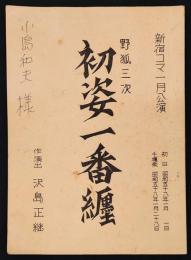 新宿コマ一月公演
初日 昭和五十八年一月一日
千穐楽 昭和五十八年一月二十八日
野狐三次
初姿一番纏
作・演出 沢島正継
小島和夫 様